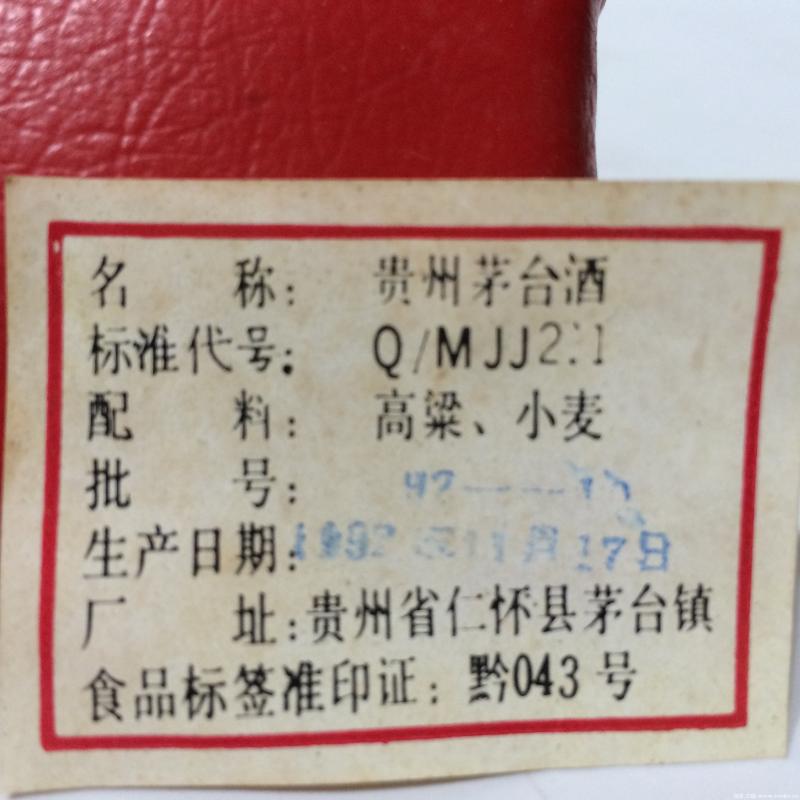 名称：贵州茅台酒
标准代号：Q/MJJ2.1
配料：高粱、小麦
批号：92----10
生产日期：1992年11月17日
厂址：贵州省仁怀县茅台镇
食品标签准印证：黔043号